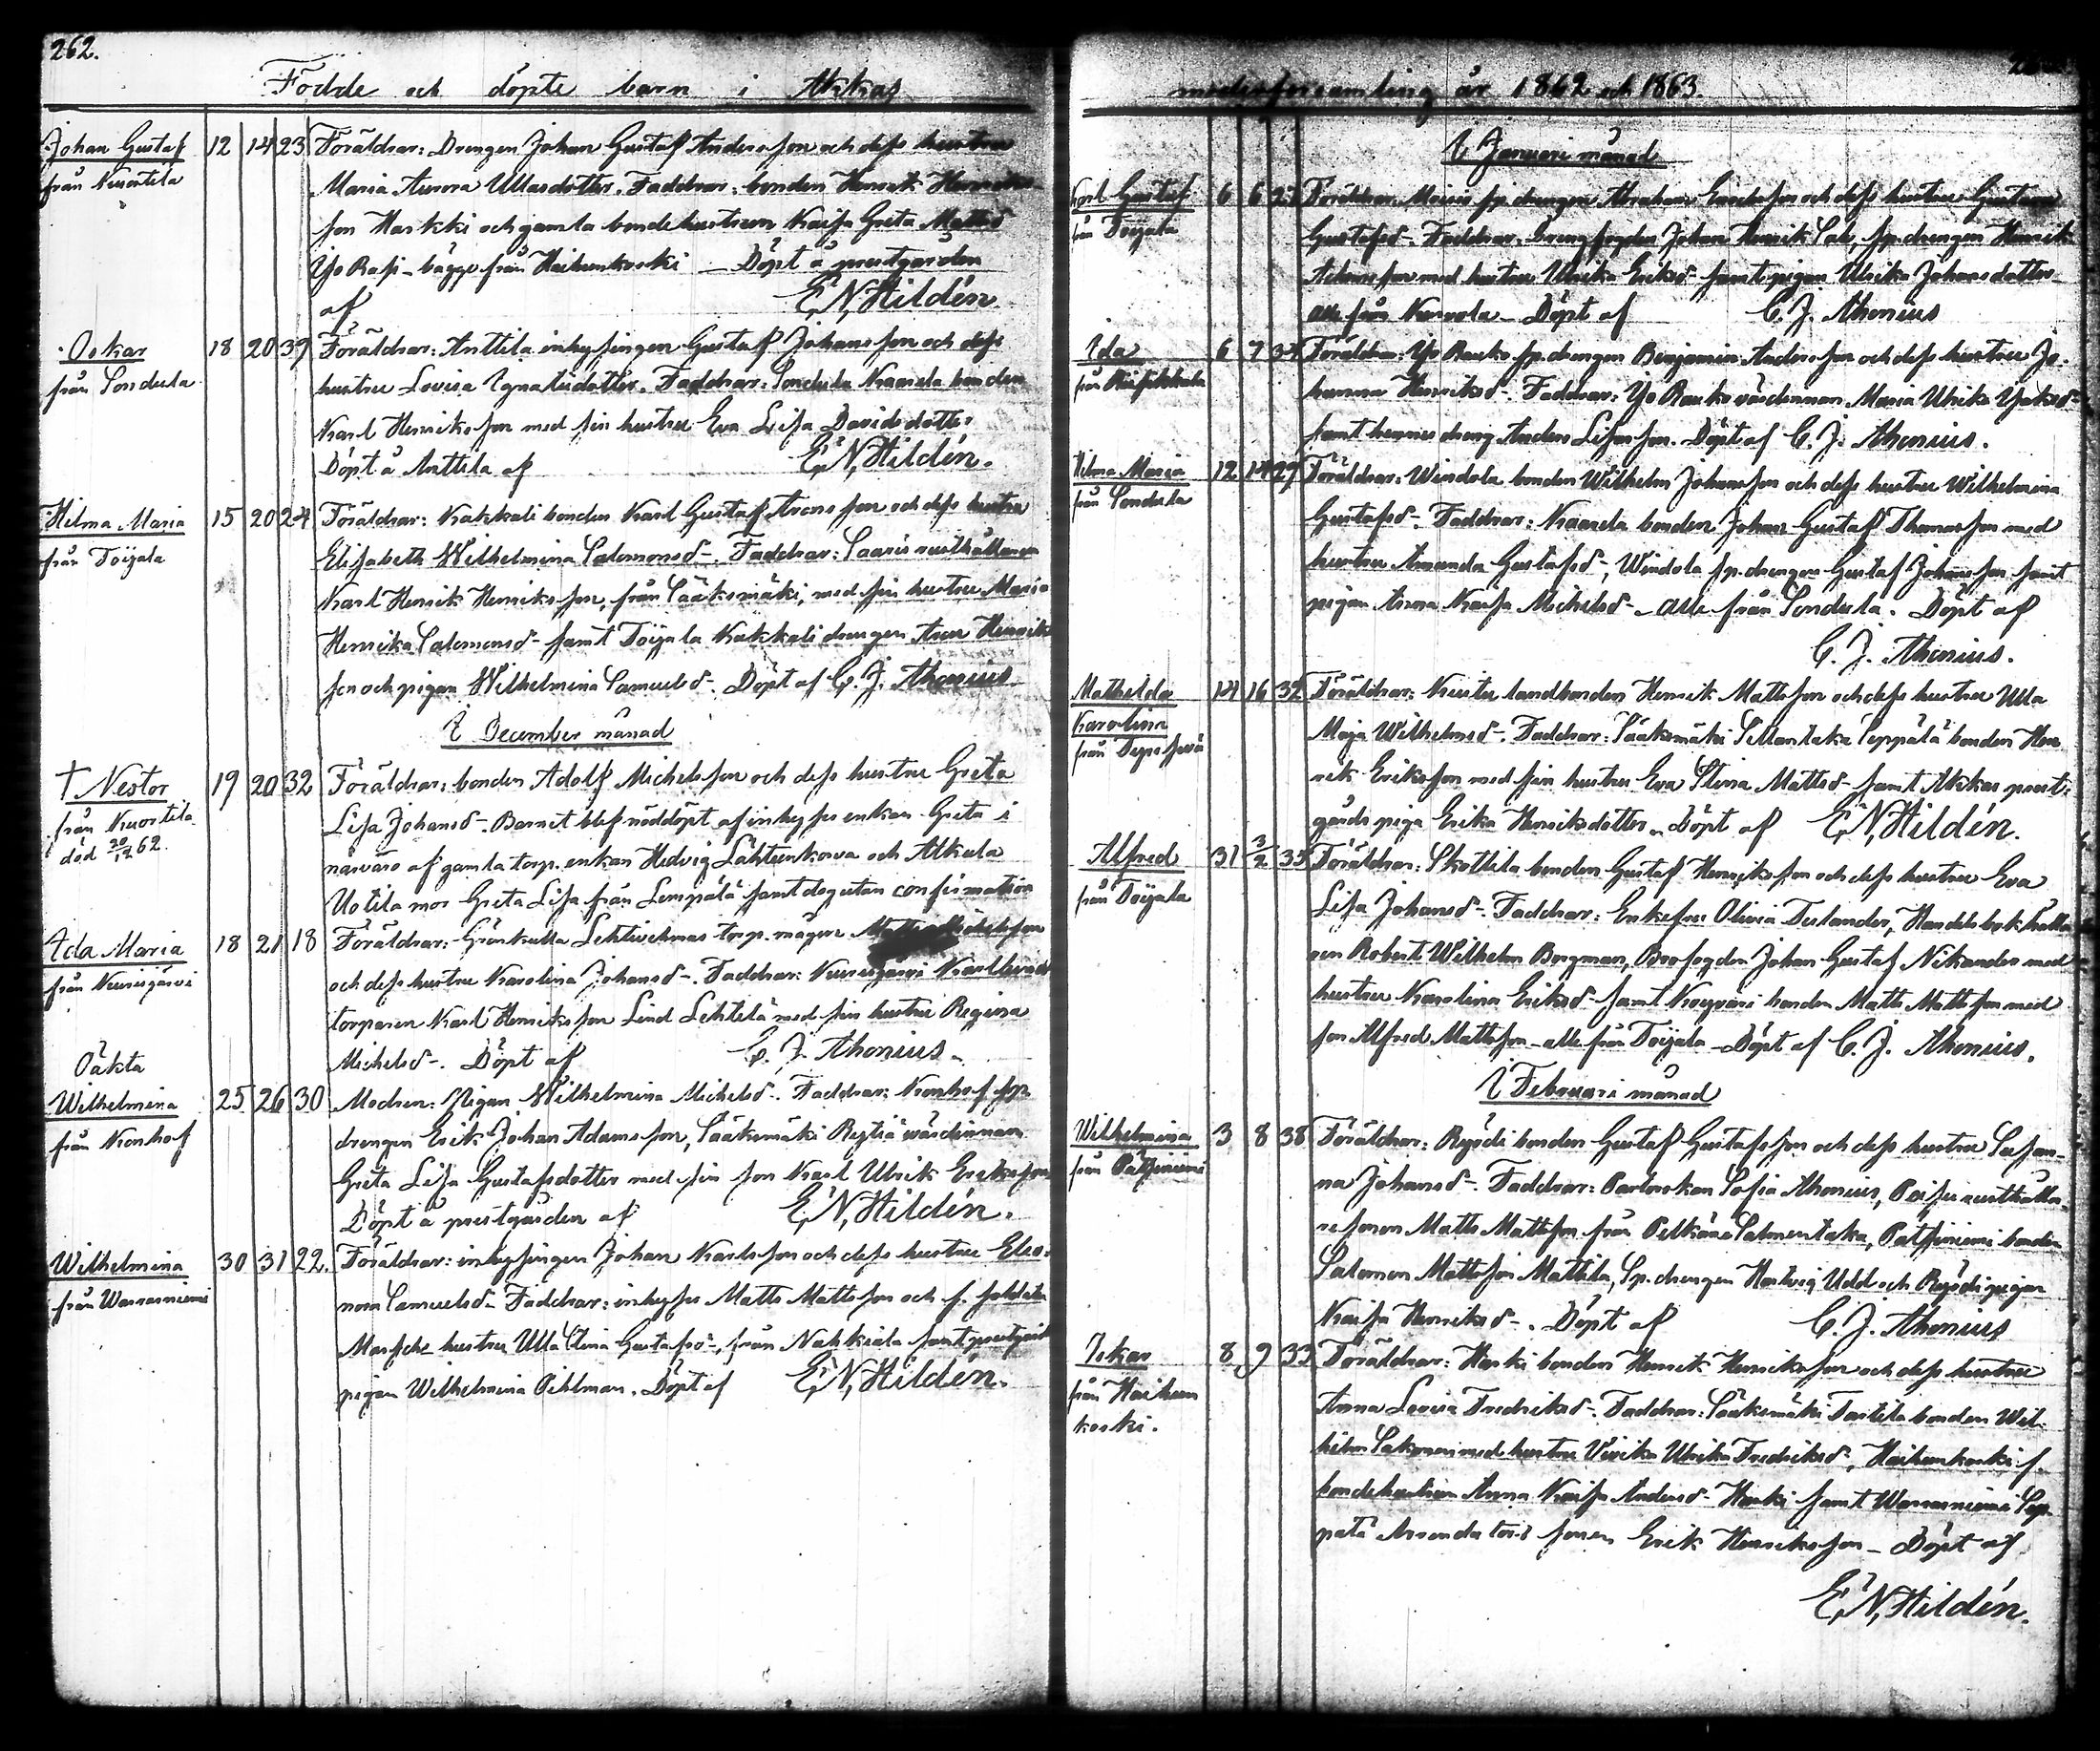 262.
Födde och döpte barn i Akkas
Johan Gustaf 12 14 23 Föräldrar: Drengen Johan Gustaf Andersson och dess hustru
från Kuortila Maria Aurora Ullasdotter. Faddrar: bonden Henrik Henriks
son Harkki och gamla bondehustrun Kaisa Greta Mattsd
Yso Rasi – bägge från Haihunkoski – Döpt å prestgården
af E. N. Hildén.
Oskar 18 20 39 Föräldrar: Anttila inhysingen Gustaf Johansson och dess
från Sondula hustru Lovisa Ignatiidotter. Faddrar: Sondula Knaarla bonden
Karl Henriksson med sin hustru Eva Lisa Davidsdotter
Döpt å Anttila af E. N. Hildén.
Hilma Maria 15 20 24 Föräldrar: Kakkali bonden Karl Gustaf Aronsson och dess hustru
från Toijala Elisabeth Wilhelmina Salomonsd–. Faddrar: Saaris rusthållaren
Karl Henrik Henriksson, från Sääksmäki, med sin hustru Maria
Henrika Salomonsd– samt Toijala Kakkali drengen Henriks
son och pigan Wilhelmina Samuelsd–. Döpt af C. J. Ahonius
I December månad
† Nestor 19 20 32 Föräldrar: bonden Adolf Michelsson och dess hustru Greta
från Kuortila Lisa Johansd–. Barnet blef nöddöpt af inhyses enkan Greta i
död 20/12 62. närvaro af gamla torp. enkan Hedvig Lähteenkorva och Alkula
Uotila mor Greta Lisa från Lempälä samt dog utan confirmation
Ida Maria 18 21 18 Föräldrar: Lehtivelmas torp. mågen
från Kurisjärvi och dess hustru Karolina Johansd–. Faddrar: Kurisjärvi
torparen Karl Henriksson Lind Lehtelä med sin hustru Regina
Michelsd–. Döpt af C. J. Ahonius.
Oäkta
Wilhelmina 25 26 30 Modren: Pigan Wilhelmina Michelsd–. Faddrar: Konhof sp.
från Konhof drengen Erik Johan Adamsson, Sääksmäki värdinnan
Greta Lisa Gustafsdotter med sin son Karl Ulrik Eriksson
Döpt å prestgården af E. N. Hildén.
Wilhelmina 30 31 22. Föräldrar: inhysingen Johan Karlsson och dess hustru Eleo-
från Warrasniemi nora Samuelsd– Faddrar: inhyses Matts Mattsson och f. soldaten
hustru Ulla Stina Gustafsd–, från Nahkiala samt prestgårds
pigan Wilhelmina Pihlman. Döpt af E. N. Hildén.
modersförsamling år 1862 och 1863.
I Januari månad
Karl Gustaf 6 6 23 Föräldrar: sp. drengen Abraham och dess hustru Gustava
från Toijala Gustafsd– Faddrar: Drengfogden Johan Henrik sp. drengen Henrik
Adamsson med hustru Ulrika Eriksd– samt pigan Ulrika Johansdotter
alla från – Döpt af C. J. Ahonius
Ida 6 7 34 Föräldrar: Yso Rauko sp. drengen Benjamin Andersson och dess hustru Jo-
hanna Henriksd–. Faddrar: Yso Rauko värdinnan Maria Ulrika
samt hennes dreng Anders . Döpt af C. J. Ahonius.
Hilma Maria 12 14 29 Föräldrar: Windola bonden Wilhelm Johansson och dess hustru Wilhelmina
från Sondula Gustafsd–. Faddrar: Knaarla bonden Johan Gustaf Thomasson med
hustru Amanda Gustafsd–, Windola sp. drengen Gustaf Johansson samt
pigan Anna Kaisa Michelsd– – alla från Sondula. Döpt af
C. J. Ahonius.
Mathilda 14 16 32 Föräldrar: landbonden Henrik Mattsson och dess hustru Ulla
Karolina Maja Wilhelmsd–. Faddrar: Sääksmäki Seppälä bonden Hen-
från rik Eriksson med sin hustru Eva Stina Mattsd– samt Akkas prest-
gårds piga Erika Henriksdotter. Döpt af E. N. Hildén.
Alfred 31 3/2 35 Föräldrar: Skottila bonden Gustaf Henriksson och dess hustru Eva
från Toijala Lisa Johansd–. Faddrar: Enkefru Olivia Tulander, Handelsbokhålla
ren Robert Wilhelm Bergman, Brofogden Johan Gustaf Nikander med
hustru Karolina Eriksd– samt bonden Matts Mattsson med
son Alfred Mattsson – alla från Toijala – Döpt af C. J. Ahonius.
I Februari månad
Wilhelmina 3 8 38 Föräldrar: Rysdi bonden Gustaf Gustafsson och dess hustru Susan-
från Pätsiniemi na Johansd–. Faddrar: Pastorskan Sofia Ahonius, rusthålla-
resonen Matts Mattsson från Pelkäne Salmentaka, Pätsiniemi bonden
Salomon Mattsson Mattila, Sp. drengen Hartvig Udd och Rysdi pigan
Kaisa Henriksd–. Döpt af C. J. Ahonius
Iskar 8 9 33 Föräldrar: Harki bonden Henrik Henriksson och dess hustru
från Haihun Anna Lovisa Fredriksd–. Faddrar: Sääksmäki Tartila bonden Wil-
koski. helm Salomon med hustru Ulrika Fredriksd–, Haihunkoski f.
bondehustrun Anna Kaisa Andersd– Harki samt Warrasniemi Sep-
pälä Arrendators sonen Erik Henriksson – Döpt af
E. N. Hildén.